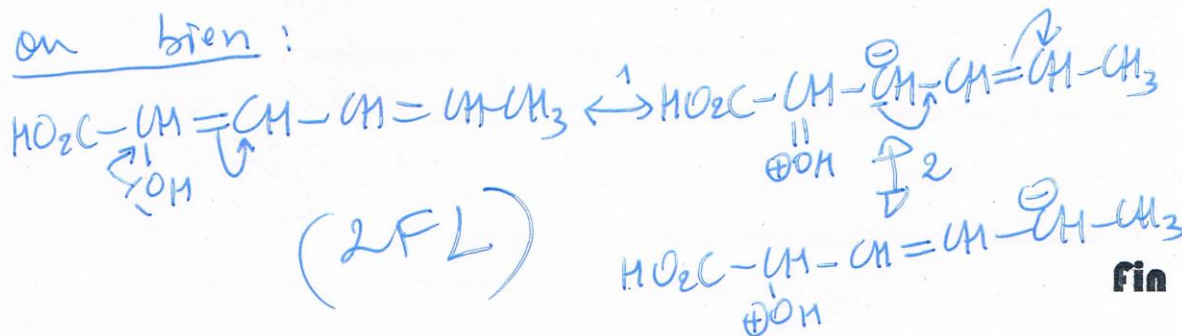 on bien :
HO₂C-CH=CH-CH=CH-CH₃ ⟷ 1 HO₂C-CH-CH-CH=CH-CH₃
OH
⊖
‖
⊕OH
2
(2FL)
HO₂C-CH-CH=CH-CH-CH₃
⊖
⊕OH
Fin